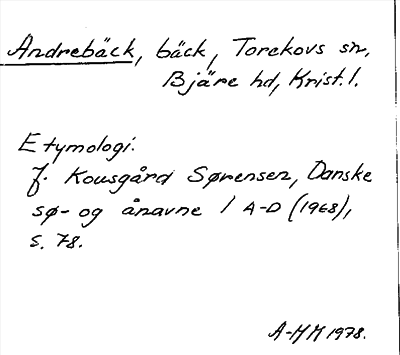 Andrebäck, bäck, Torekovs sn,
Bjäre hd, Krist. l.
Etymologi:
Jf. Kousgård Sørensen, Danske
sø- og ånavne 1 A-D (1968),
s. 78.
A-MM 1978.